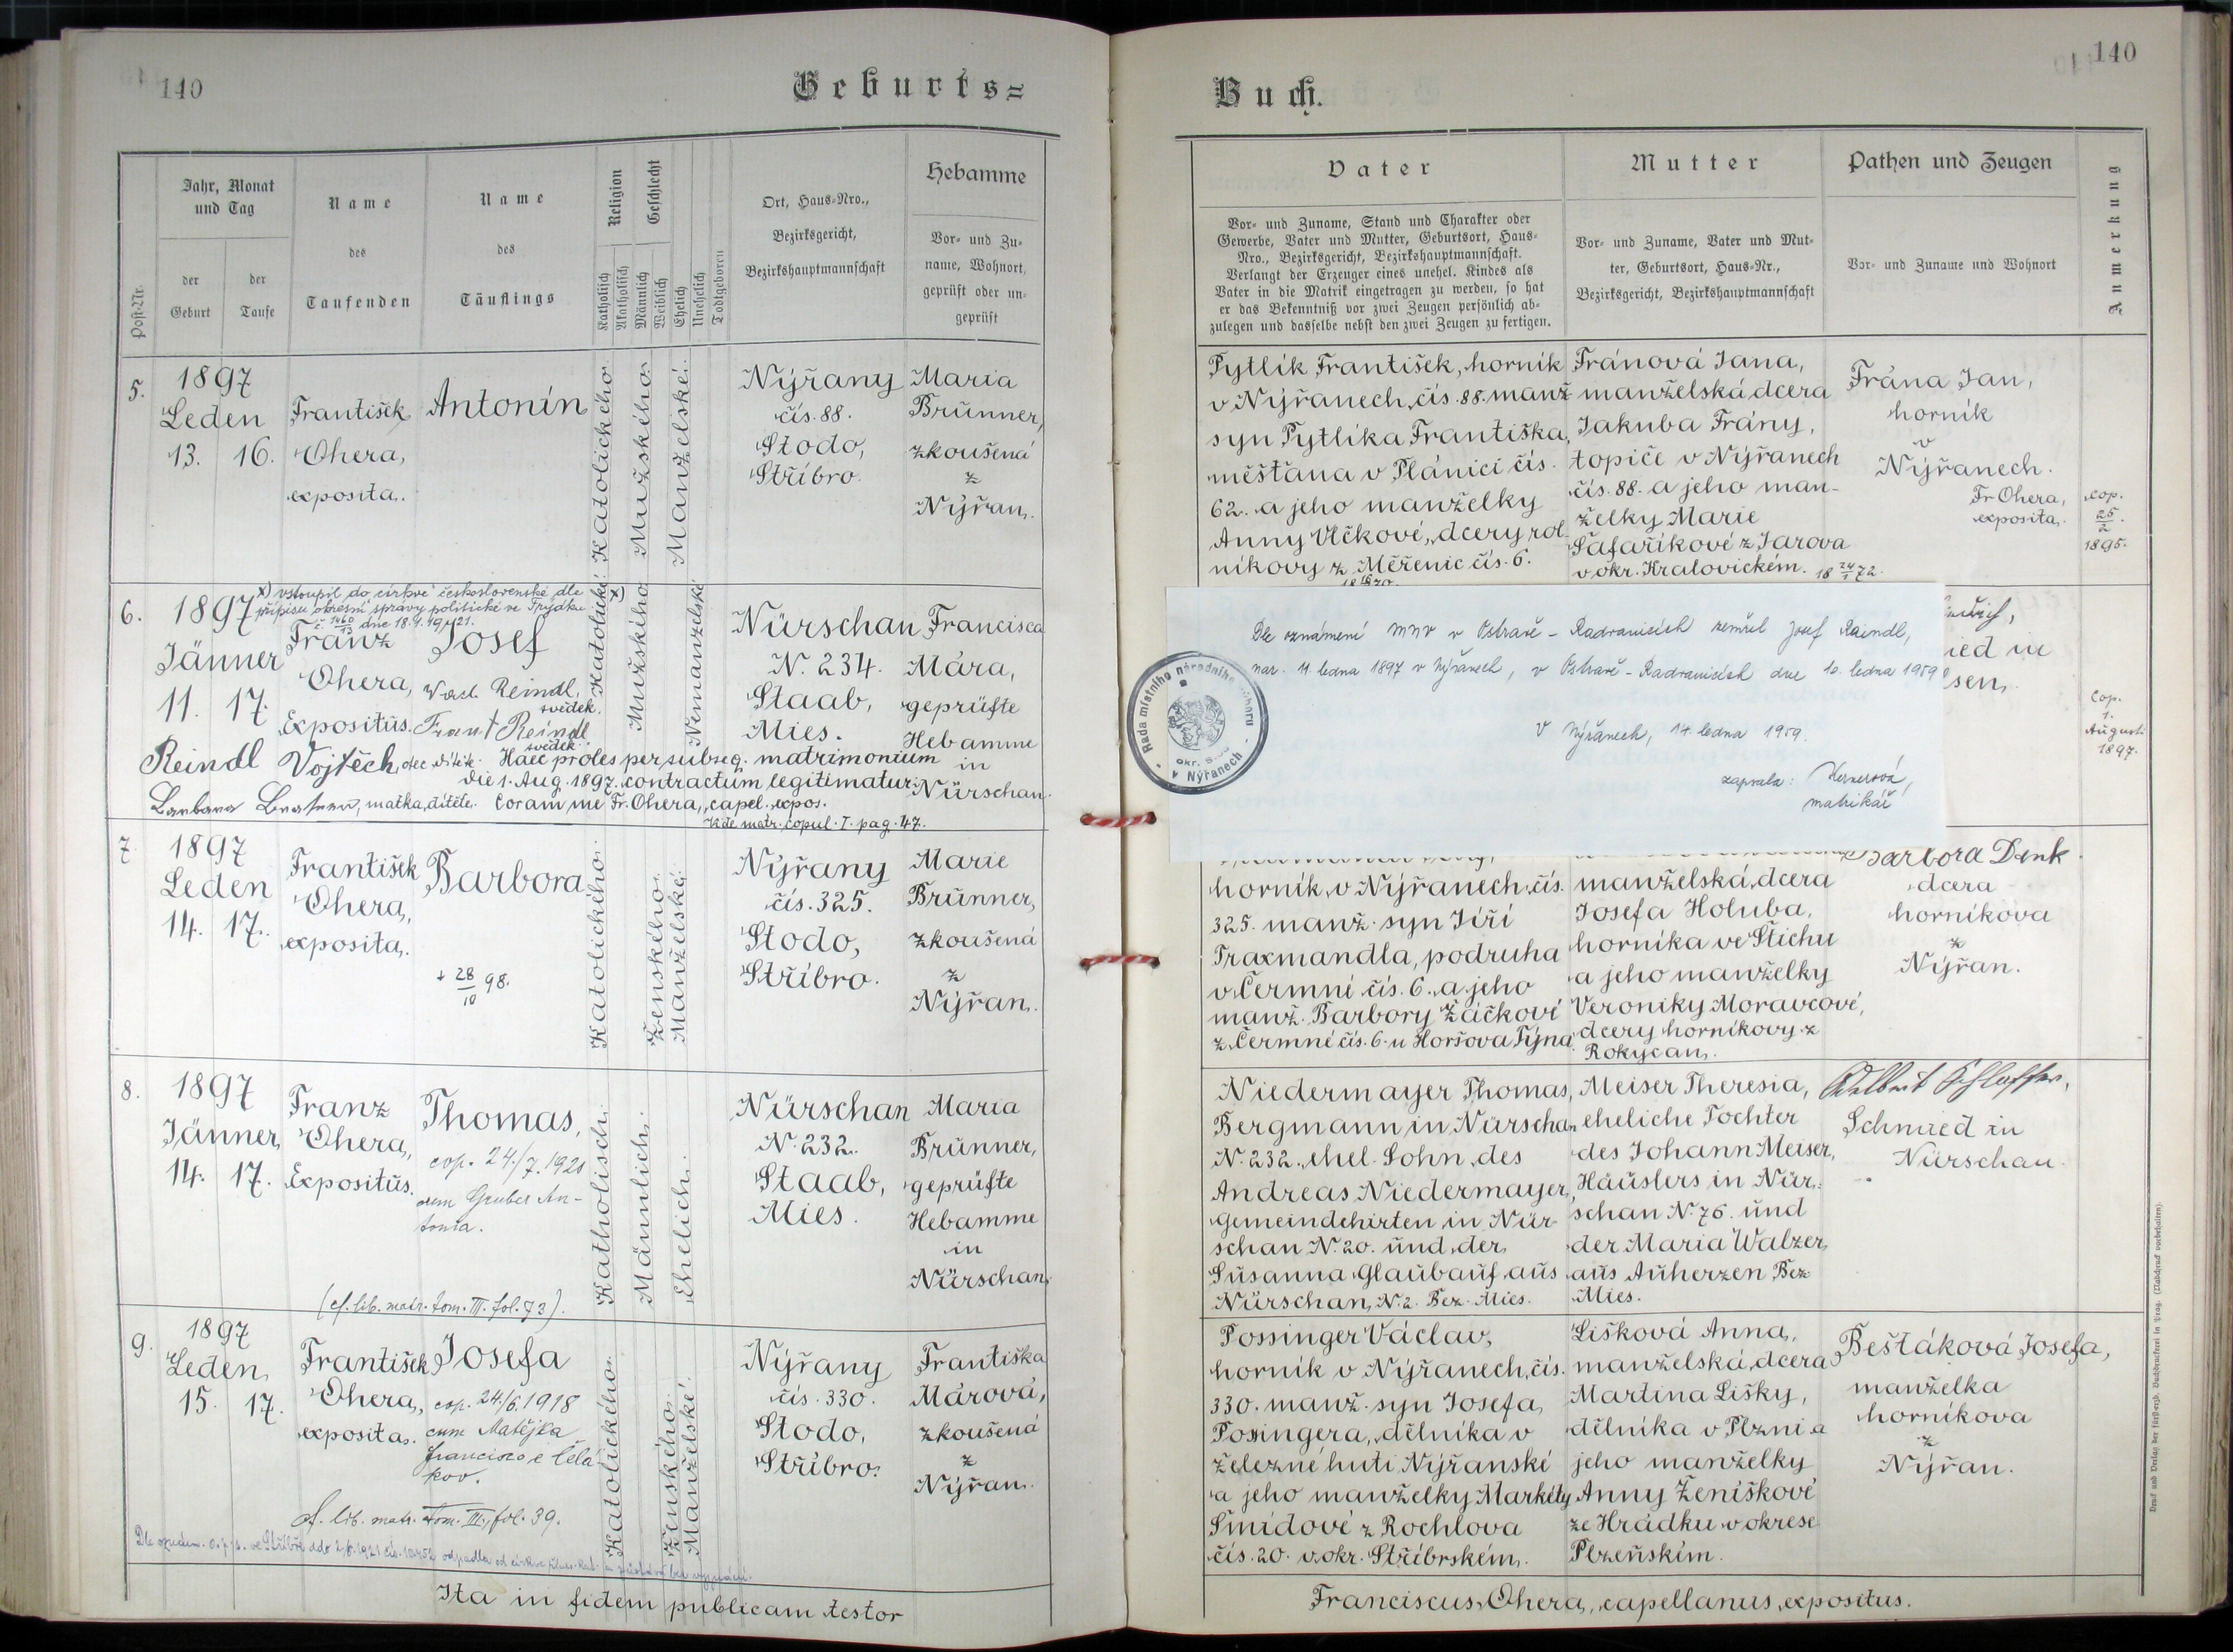 140
Geburts=
Post-Nr.
Jahr, Monat
und Tag
der
Geburt
der
Taufe
Name
des
Taufenden
Name
des
Täuflings
Religion
Katholisch
Akatholisch
Geschlecht
Männlich
Weiblich
Ehelich
Unehelich
Todtgeboren
Ort, Haus-Nro.,
Bezirksgericht,
Bezirkshauptmannschaft
Hebamme
Vor- und Zu-
name, Wohnort,
geprüft oder un-
geprüft
5.
1897
Leden
13. 16.
František
Ohera,
exposita.
Antonín
Katolického.
Mužského.
Manželské.
Nýřany
čís. 88.
Stodo,
Stříbro.
Maria
Brünner,
zkoušená
z
Nýřan.
x) vstoupil do církve československé dle
přípisu okresní správy politické ve Frýdku
č. 1460/13 dne 18.4.1921.
6.
1897
Jänner
11. 17.
Franz
Ohera,
Expositus.
Josef
Reindl,
svědek.
Frant Reindl
svědek
x)
Katolické.
Mužského
Nemanželské
Nürschan
N. 234.
Staab,
Mies.
Francisca
Mára,
geprüfte
Hebamme
in
Nürschan.
Reindl Vojtěch, otec dítěte. Haec proles per subseq. matrimonium
die 1. Aug. 1897. contractum legitimatur.
Barbara matka dítěte. Coram me Fr. Ohera, capel. expos.
Vide matr. copul. I. pag. 47.
7.
1897
Leden
14. 17.
František
Ohera,
exposita.
Barbora
+ 28/10 98.
Katolického.
Ženského.
Manželské.
Nýřany
čís. 325.
Stodo,
Stříbro.
Marie
Brünner,
zkoušená
z
Nýřan.
8.
1897
Jänner
14. 17.
Franz
Ohera,
Expositus.
Thomas,
cop. 24./7.1921
cum Gruber An-
tonia.
(cf. lib. matr. tom. III. fol. 73).
Katholisch.
Männlich.
Ehelich.
Nürschan
N. 232.
Staab,
Mies.
Maria
Brünner,
geprüfte
Hebamme
in
Nürschan.
9.
1897
Leden
15. 17.
František
Ohera,
exposita.
Josefa
cop. 24./6.1918
cum Matějka
Francisco e Čelá-
kov.
cf. lib. matr. tom. III, fol. 39.
Katolického.
Ženského.
Manželské.
Nýřany
čís. 330.
Stodo,
Stříbro.
Františka
Márová,
zkoušená
z
Nýřan.
Ita in fidem publicam testor
140
Buch.
Vater
Vor- und Zuname, Stand und Charakter oder
Gewerbe, Vater und Mutter, Geburtsort, Haus-
Nro., Bezirksgericht, Bezirkshauptmannschaft.
Verlangt der Erzeuger eines unehel. Kindes als
Vater in die Matrik eingetragen zu werden, so hat
er das Bekenntniß vor zwei Zeugen persönlich ab-
zulegen und dasselbe nebst den zwei Zeugen zu fertigen.
Mutter
Vor- und Zuname, Vater und Mut-
ter, Geburtsort, Haus-Nr.,
Bezirksgericht, Bezirkshauptmannschaft
Pathen und Zeugen
Vor- und Zuname und Wohnort
Anmerkung
Pytlík František, horník
v Nýřanech, čís. 88. manž
syn Pytlíka Františka,
měšťana v Plánici čís.
62. a jeho manželky
Anny Vlčkové, dcery rol
níkovy z Měřenic čís. 6.
Fránová Jana,
manželská dcera
Jakuba Frány,
topiče v Nýřanech
čís. 88. a jeho man-
želky Marie
Šafaříkové z Jarova
v okr. Kralovickém. 18 24/1 72.
Frána Jan,
horník
v
Nýřanech.
Fr Ohera,
exposita.
Cop.
25/2.
1895.
Dle oznámení MNV v Ostravě - Radvanicích zemřel Josef Raindl,
nar. 11. ledna 1897 v Nýřanech, v Ostravě - Radvanicích dne 10. ledna 1959
V Nýřanech, 14. ledna 1959.
zapsala:
matrikář
Rada místního národního výboru
v Nýřanech
Cop.
1.
Augusti
1897.
horník v Nýřanech, čís.
325. manž. syn Jiří
Traxmandla, podruha
v Čermné čís. 6. a jeho
manž. Barbory Žáčkové
z Čermné čís. 6. u Horšova Týna.
manželská dcera
Josefa Holuba,
horníka ve Štichu
a jeho manželky
Veroniky Moravcové,
dcery horníkovy z
Rokycan.
Barbora Denk
dcera
horníkova
z
Nýřan.
Niedermayer Thomas,
Bergmann in Nürschan
N. 232. ehel. Sohn des
Andreas Niedermayer,
Gemeindehirten in Nür-
schan N. 20. und der
Susanna Glaubauf aus
Nürschan, N. 2. Bez. Mies.
Meiser Theresia,
eheliche Tochter
des Johann Meiser,
Häuslers in Nür-
schan N. 76. und
der Maria Walzer,
aus Auherzen Bez
Mies.
Adalbert Schlosser,
Schmied in
Nürschan.
Possinger Václav,
horník v Nýřanech, čís.
330. manž. syn Josefa
Possingera, dělníka v
železné huti Nýřanské
a jeho manželky Markéty
Šmídové z Rochlova
čís. 20. v okr. Stříbrském.
Lišková Anna,
manželská dcera
Martina Lišky,
dělníka v Plzni a
jeho manželky
Anny Ženíškové
ze Hrádku v okrese
Plzeňském.
Bešťáková Josefa,
manželka
horníkova
z
Nýřan.
Franciscus Ohera, capellanus expositus.